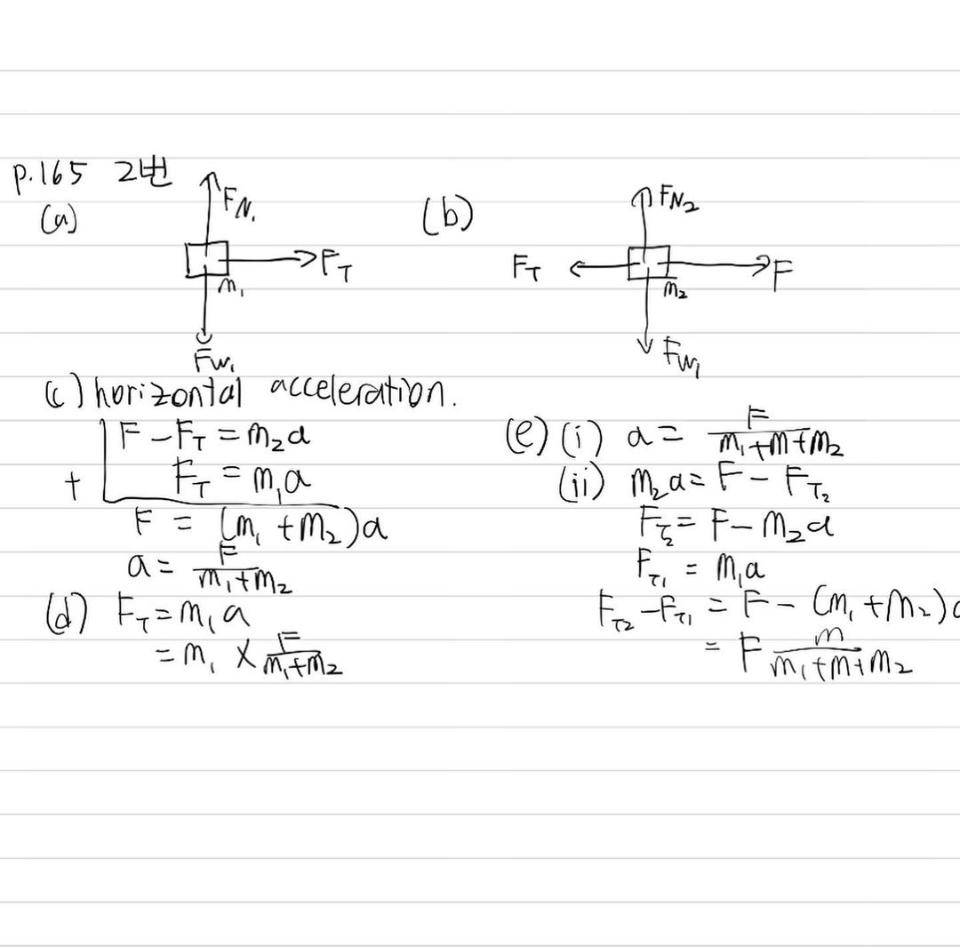 p.165 2번
(a)
F_N₁
F_T
m₁
F_W₁
(b)
F_N₂
F_T
F
m₂
F_W₁
(c) horizontal acceleration.
F - F_T = m₂a
+ F_T = m₁a
F = (m₁ + m₂)a
a = F/(m₁+m₂)
(d) F_T = m₁a
= m₁ × F/(m₁+m₂)
(e) (i) a = F/(m₁+m+m₂)
(ii) m₂a = F - F_T₂
F_T₂ = F - m₂a
F_T₁ = m₁a
F_T₂ - F_T₁ = F - (m₁ + m₂)a
= F m/(m₁+m+m₂)